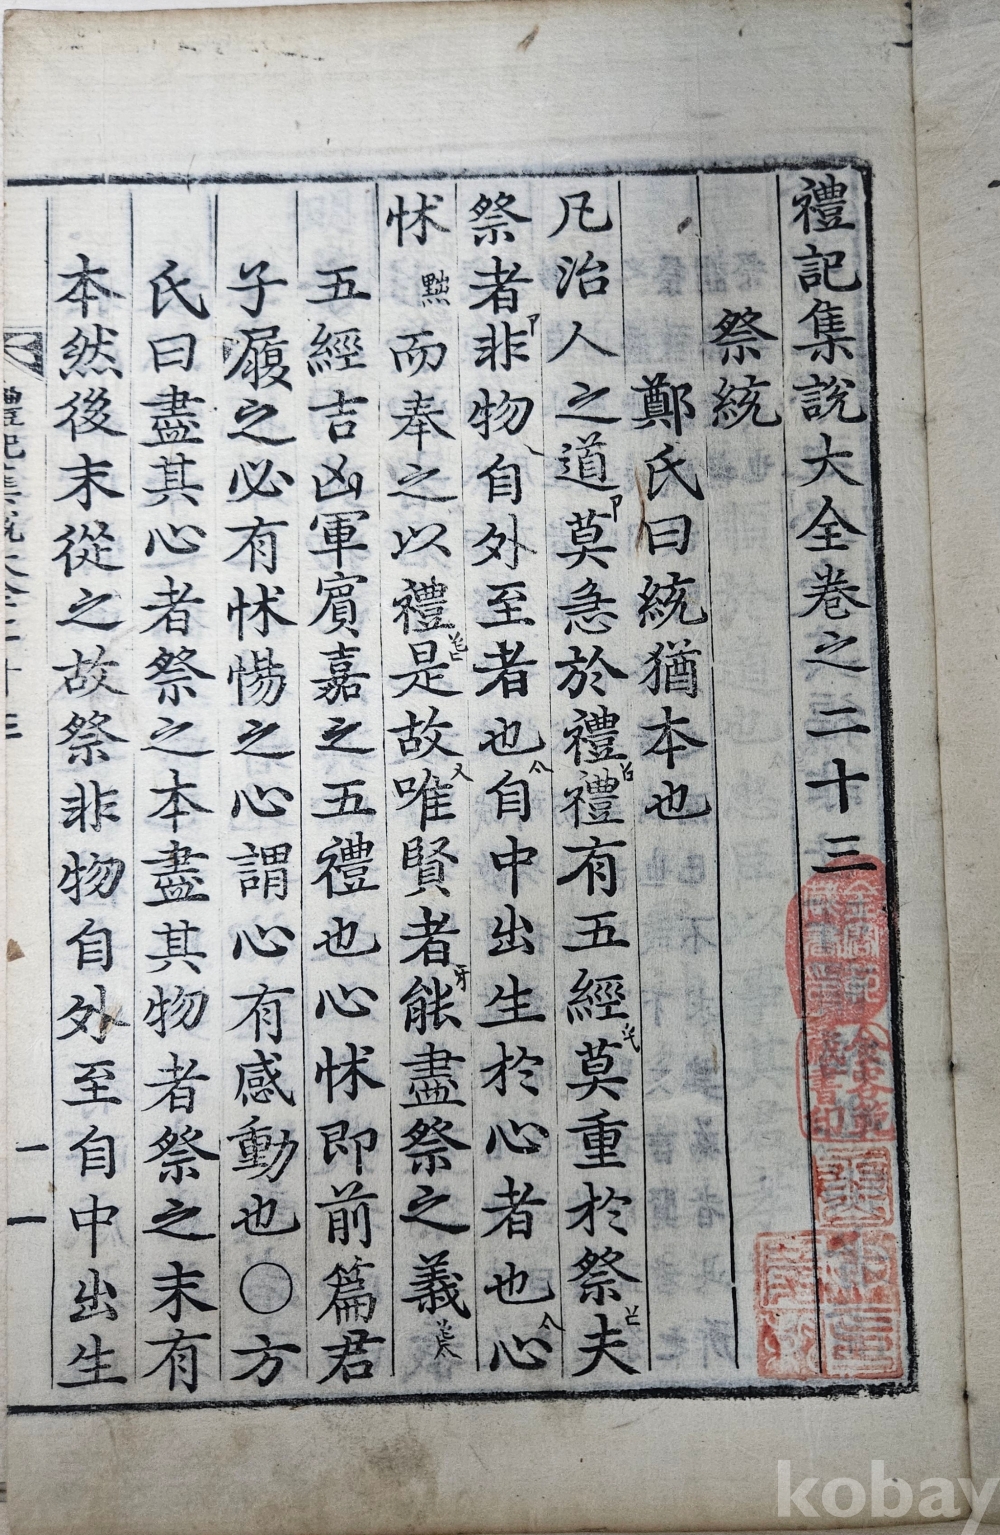 禮記集說大全卷之二十三
祭統
鄭氏曰統猶本也
凡治人之道莫急於禮禮有五經莫重於祭夫
祭者非物自外至者也自中出生於心者也心
怵而奉之以禮是故唯賢者能盡祭之義
五經吉凶軍賓嘉之五禮也心怵即前篇君
子履之必有怵惕之心謂心有感動也○方
氏曰盡其心者祭之本盡其物者祭之末有
本然後末從之故祭非物自外至自中出生
禮記集說大全二十三
一
kobay